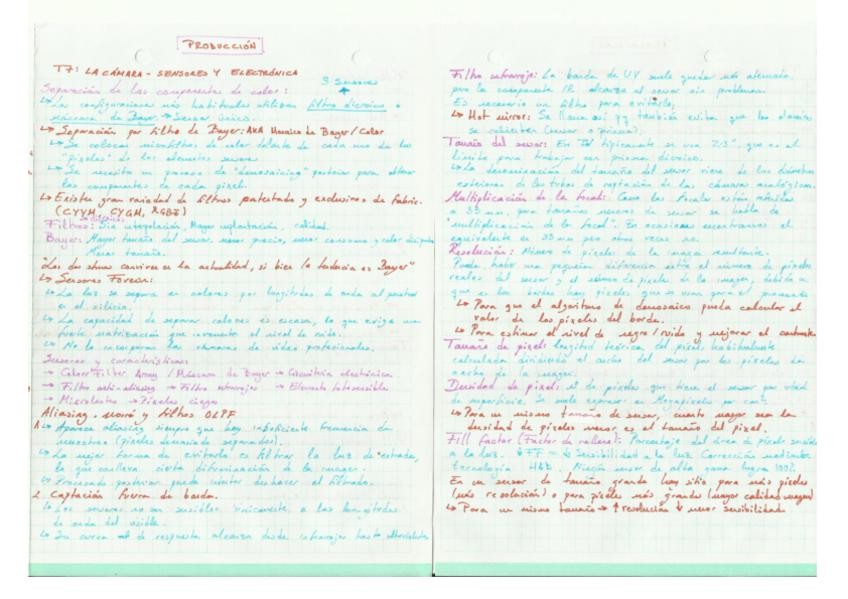 PRODUCCIÓN
T7: LA CÁMARA - SENSORES Y ELECTRÓNICA
Separación de las componentes de color: 3 sensores
↳ La configuraciones más habituales utilizan filtro dicroico o
máscara de Bayer → Sensor único.
↳ Separación por filtro de Bayer: AKA Mosaico de Bayer/Color
↳ Se colocan microfiltros de color delante de cada uno de los
"píxeles" de los elementos sensores
↳ Se necesita un proceso de "demosaicing" posterior para obtener
las componentes de cada pixel.
↳ Existen gran variedad de filtros patentados y exclusivos de fabric.
(CYYM, CYGM, RGBE)
Filtros: Sin interpolación, Mayor implantación, calidad.
Bayer: Mayor tamaño del sensor, menor precio, menor consumo y calor disipado
Menor tamaño.
"Los dos conviven en la actualidad, si bien la tendencia es Bayer"
↳ Sensores Foveon:
↳ La luz se separa en colores por longitudes de onda al penetrar
en el silicio.
↳ La capacidad de separar colores es escasa, lo que exige una
fuerte matrización que incrementa el nivel de ruido.
↳ No lo incorporan las cámaras de vídeo profesionales.
Sensores y características:
→ Colour Filter Array / Máscara de Bayer → Circuitería electrónica
→ Filtro anti-aliasing → Filtro infrarrojos → Elemento fotosensible
→ Microlentes → Píxeles ciegos
Aliasing, moiré y filtros OLPF
1. ↳ Aparece aliasing siempre que hay insuficiente frecuencia de
muestreo (píxeles demasiado separados).
↳ La mejor forma de evitarlo es filtrar la luz de entrada,
lo que conlleva cierta difuminación de la imagen.
↳ Procesado posterior puede intentar deshacer el filtrado.
2. Captación fuera de banda.
↳ Los sensores no son sensibles únicamente a las longitudes
de onda del visible.
↳ Su curva de respuesta alcanza desde infrarrojos hasta ultravioleta
Filtro infrarrojo: La banda de UV suele quedar más atenuada
pero la componente IR alcanza al sensor sin problemas.
Es necesario un filtro para evitarlo:
↳ Hot mirror: Se llama así pq también evita que los elementos
se calienten (sensor o prisma).
Tamaño del sensor: En TV típicamente se usa 2/3", que es el
límite para trabajar con prisma dicroico.
↳ La denominación del tamaño del sensor viene de los diámetros
exteriores de los tubos de captación de las cámaras analógicas.
Multiplicación de la focal: Como las focales están referidas
a 35 mm, para tamaños menores de sensor se habla de
"multiplicación de la focal". En ocasiones encontramos el
equivalente en 35 mm pero otras veces no.
Resolución: Número de píxeles de la imagen resultante.
Puede haber una pequeña diferencia entre el número de píxeles
reales del sensor y el número de píxeles de la imagen, debido a
que en los bordes hay píxeles que se usan para el procesado
↳ Para que el algoritmo de demosaico pueda calcular el
valor de los píxeles del borde.
↳ Para estimar el nivel de negro/ruido y mejorar el contraste
Tamaño de píxel: longitud teórica del píxel habitualmente
calculada dividiendo el ancho del sensor por los píxeles de
ancho de la imagen.
Densidad de píxel: nº de píxeles que tiene el sensor por unidad
de superficie. Se suele expresar en Megapíxeles por cm².
↳ Para un mismo tamaño de sensor, cuanto mayor sea la
densidad de píxeles menor es el tamaño del píxel.
Fill factor (Factor de relleno): Porcentaje del área de píxel sensible
a la luz. ↓FF = ↓ Sensibilidad a la luz. Corrección mediante
tecnología Ningún sensor de alta gama logra 100%.
En un sensor de tamaño grande hay sitio para más píxeles
(más resolución) o para píxeles más grandes (mayor calidad imagen)
↳ Para un mismo tamaño → ↑ resolución ↓ menor sensibilidad